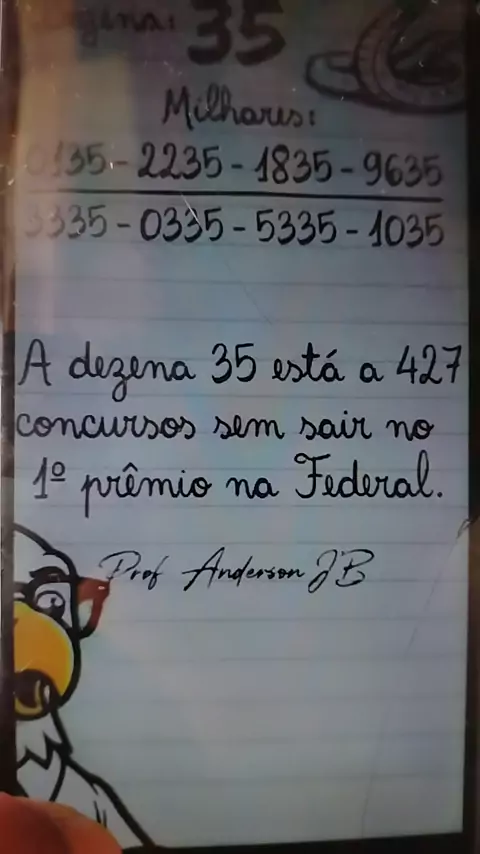 Dezena: 35
Milhares:
0135 - 2235 - 1835 - 9635
3335 - 0335 - 5335 - 1035
A dezena 35 está a 427
concursos sem sair no
1º prêmio na Federal.
Prof Anderson JB